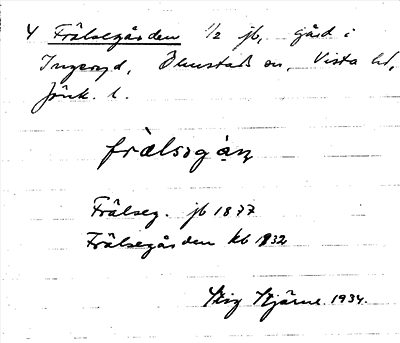 4 Frälsegården 1/2 jb, gård i
Ingeryd, Ölmstads sn, Vista hd,
Jönk. l.
frälsɘgɑ̀ɳ
Frälseg. jb 1877
Frälsegården kb 1932
Stig Stjärne 1934.